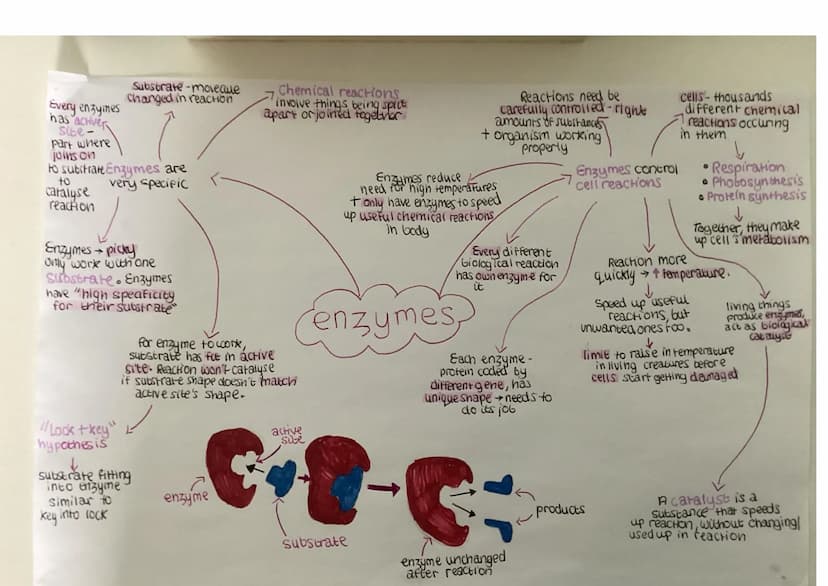 enzymes
Enzymes are
very specific
Every enzymes
has active
site -
part where
joins on
to substrate
to
catalyse
reaction
Substrate - molecule
changed in reaction
Chemical reactions
involve things being split
apart or joined together.
Enzymes → picky
only work with one
substrate. Enzymes
have "high specificity
for their substrate"
For enzyme to work,
substrate has fit in active
site. Reaction won't catalyse
if substrate shape doesn't match
active site's shape.
"Lock + key"
hypothesis
substrate fitting
into enzyme
similar to
key into lock
enzyme
active
site
substrate
enzyme unchanged
after reaction
products
Enzymes control
cell reactions
Reactions need be
carefully controlled - right
amounts of substances
+ organism working
properly
Enzymes reduce
need for high temperatures
+ only have enzymes to speed
up useful chemical reactions
in body
Every different
biological reaction
has own enzyme for
it
Each enzyme -
protein coded by
different gene, has
unique shape → needs to
do its job
Reaction more
quickly → ↑ temperature.
Speed up useful
reactions, but
unwanted ones too.
limit to raise in temperature
in living creatures before
cells start getting damaged
cells - thousands
different chemical
reactions occuring
in them
• Respiration
• Photosynthesis
• Protein synthesis
Together, they make
up cell's metabolism
living things
produce enzymes,
act as biological
catalyst
A catalyst is a
substance that speeds
up reaction, without changing/
used up in reaction